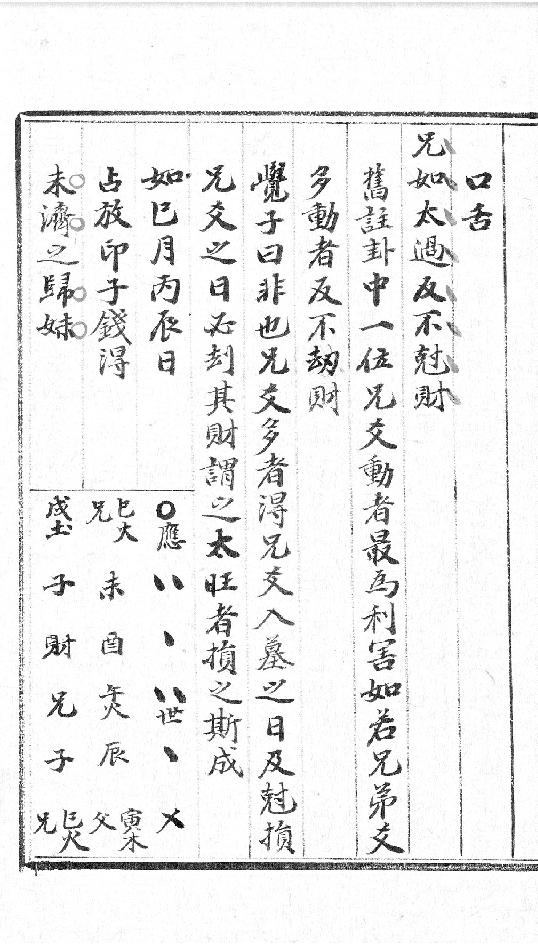 口舌
兄如太過反不尅財
舊註卦中一位兄爻動者最為利害如若兄弟爻
多動者反不劫財
覺子曰非也兄爻多者得兄爻入墓之日及尅損
兄爻之日必刦其財謂之太旺者損之斯成
如巳月丙辰日
占放印子錢得
未濟之歸妹
〇應 〃 、 〃世 、 乂
巳火兄 未 酉 午火 辰 寅木父
戌土 子 財 兄 子 巳火兄